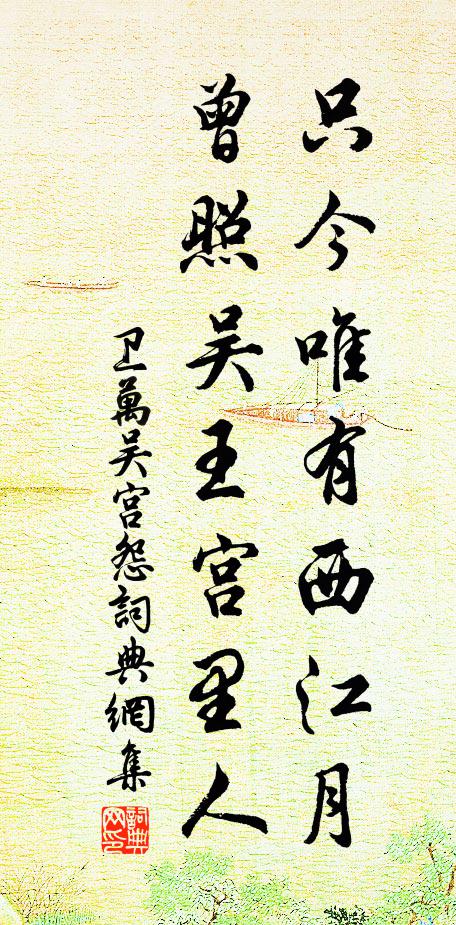 只今唯有西江月
曾照吴王宫里人
卫萬吴宫怨詞典網集
詞典網印